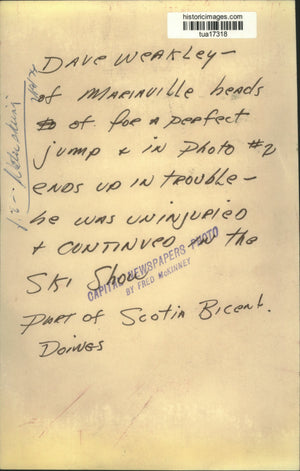 historicimages.com
tua17318
DAVE WEAKLEY—
of MARIAVILLE heads
of. for a perfect
jump & in Photo #2
ENDS UP IN TROUBLE—
he was uninjuried
& CONTINUED in the
SKI Show
CAPITAL NEWSPAPERS PHOTO
BY FRED McKINNEY
PART of Scotia Bicent.
Doings